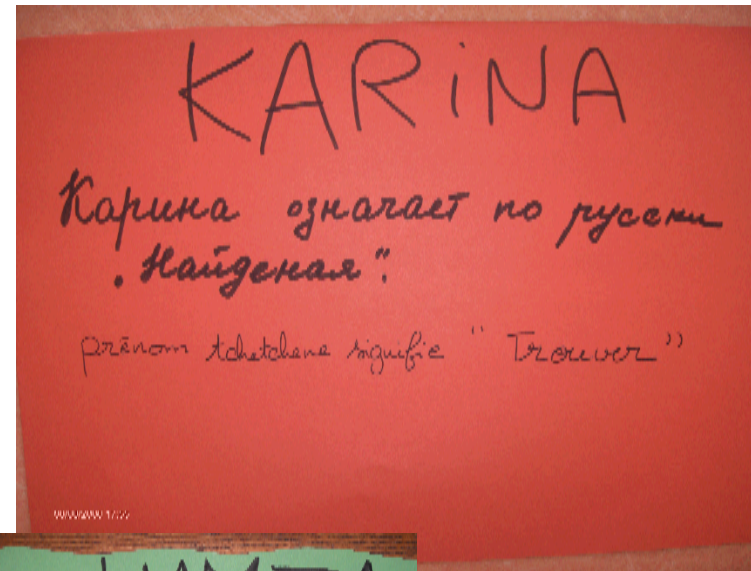 KARiNA
Карина означает по русски
„Найденая".
prénom tchetchene signifie " Trouver"